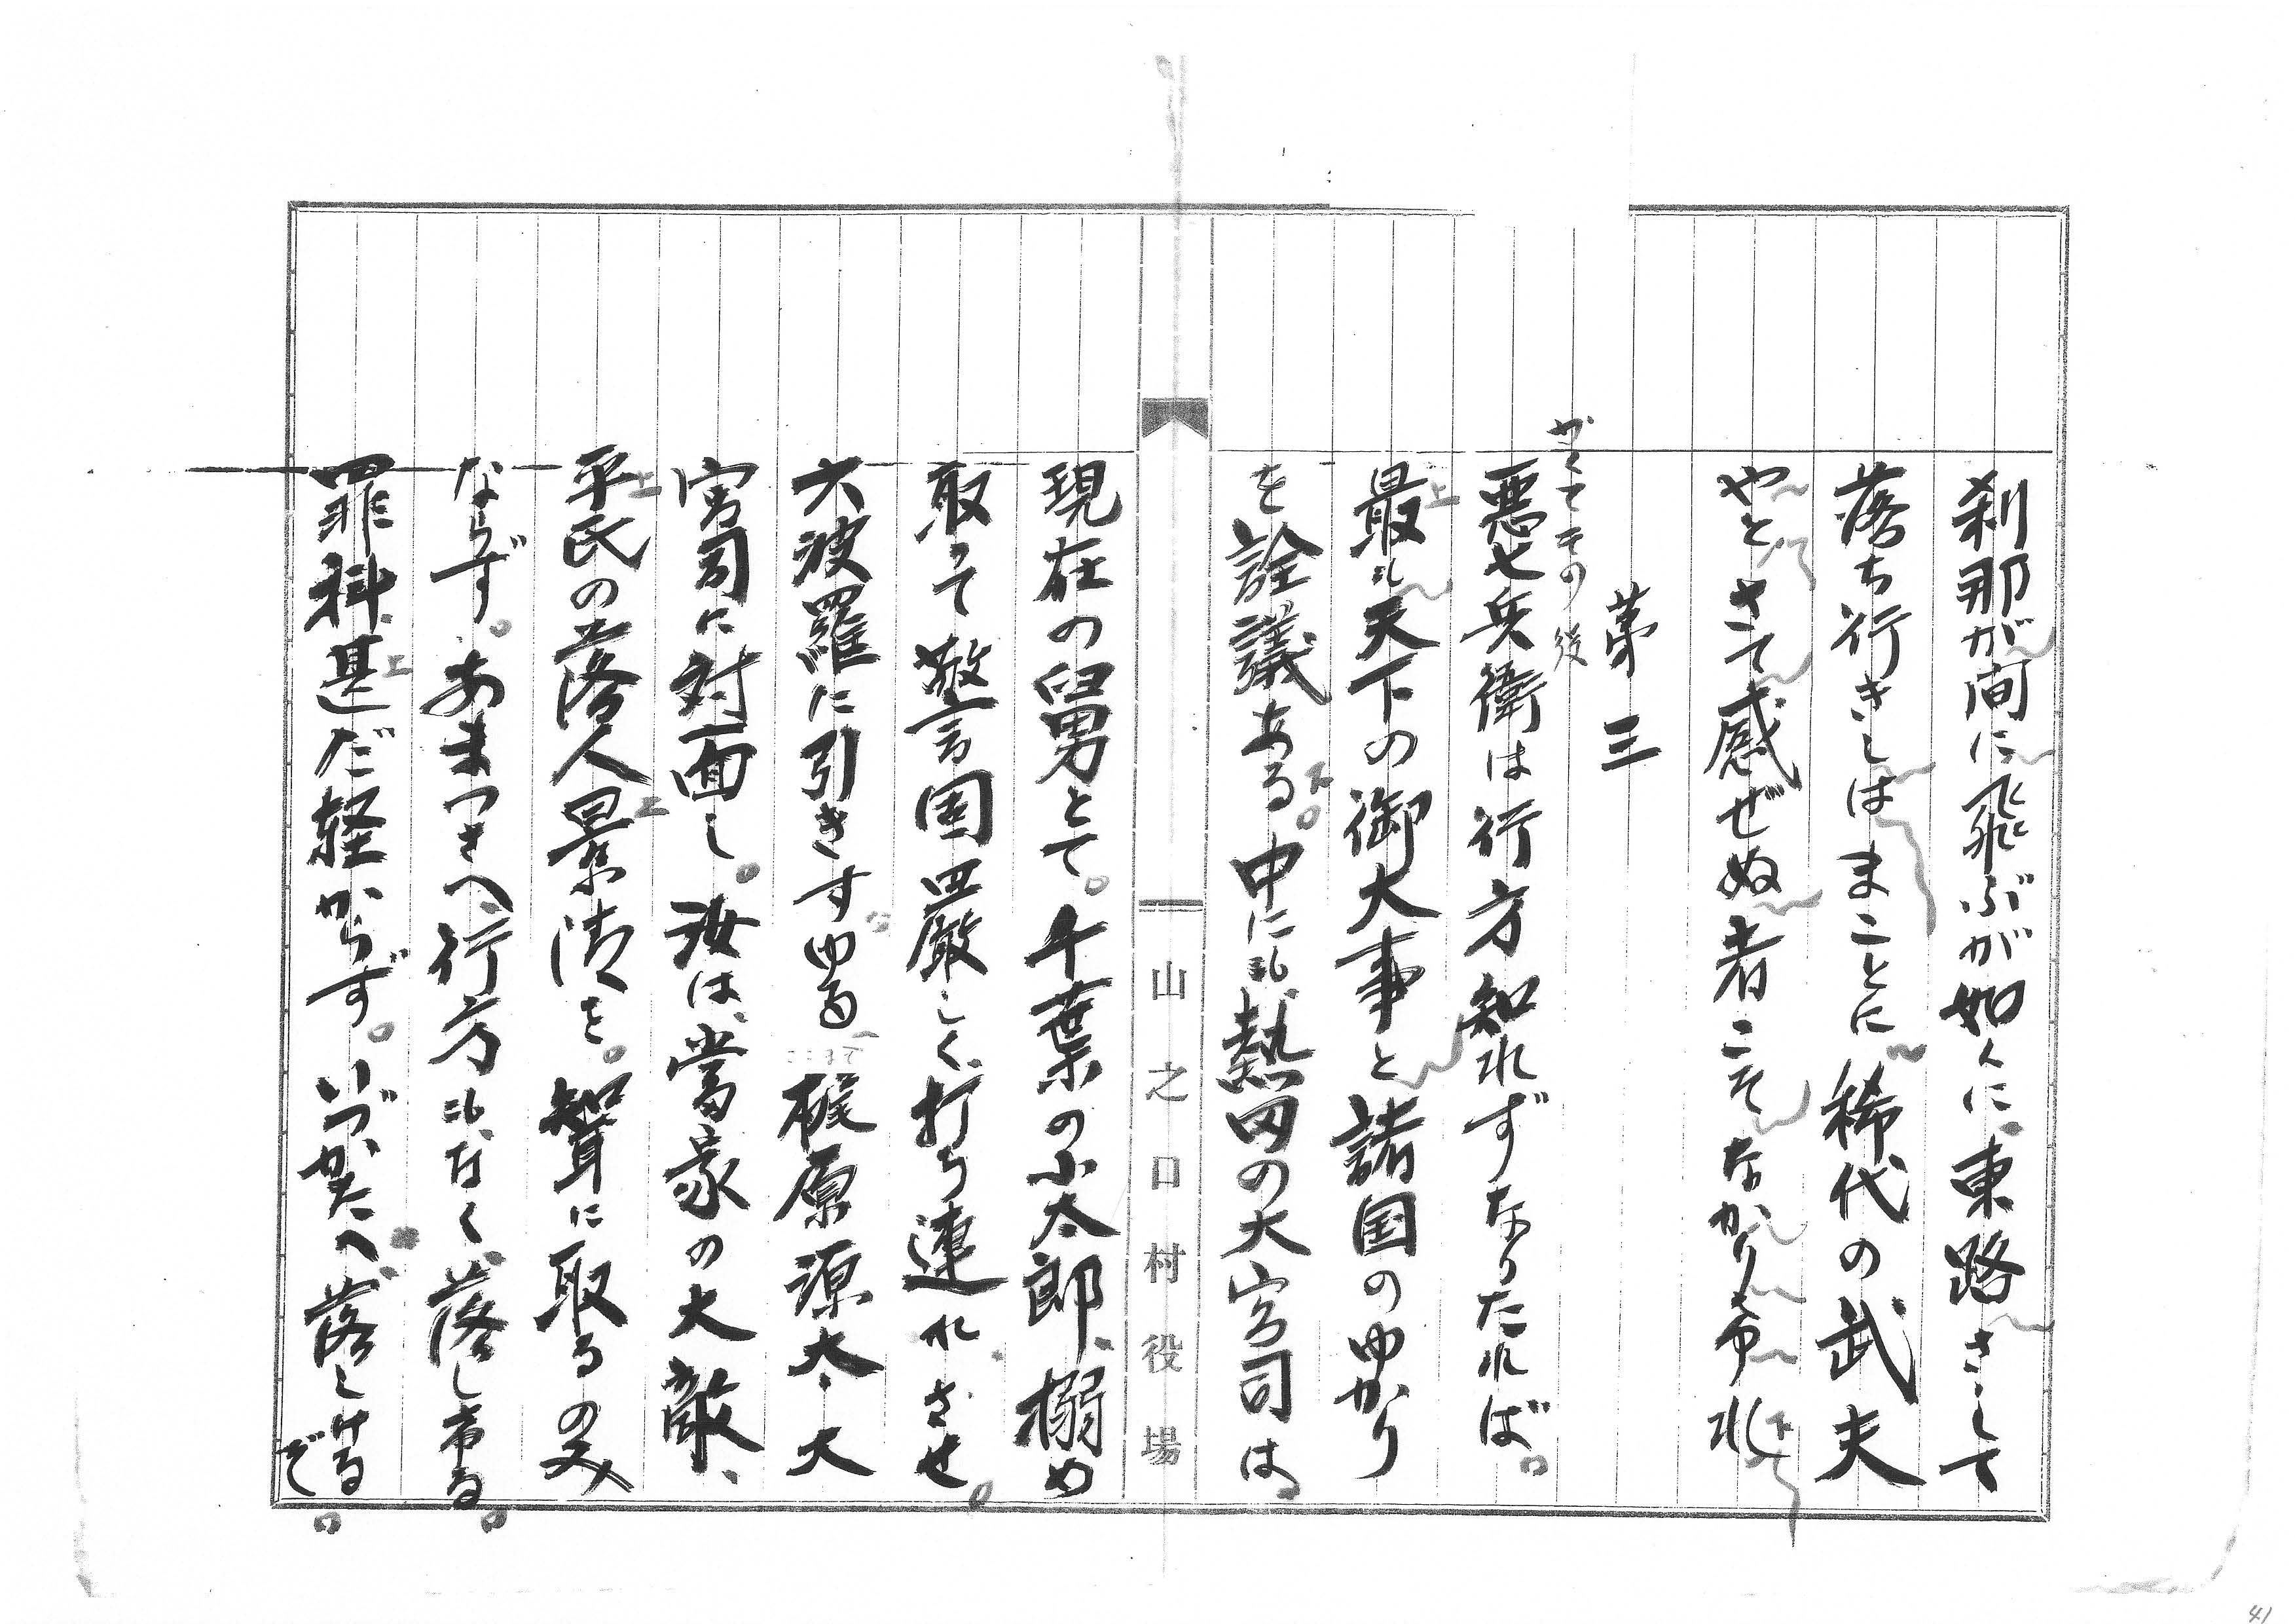 刹那が間に飛ぶが如くに、東路さして
落ち行きしはまことに稀代の武夫
やとさて感ぜぬ者こそなかりけれ
第三
かくてその後
悪七兵衛は行方知れずなりたれば。
最も天下の御大事と諸国のゆかり
を詮議ある。中にも、熱田の大宮司は、
山之口村役場
現在の舅とて。千葉の小太郎、搦め
取って警固厳しく、打ち連れさせ。
六波羅に引きすゆる
ここまで
梶原源太、大
宮司に対面し。汝は、當家の大敵、
平氏の落人景清を。聟に取るのみ
ならず。あまつさへ、行方もなく落し希る。
罪科甚だ軽からず。いづかたへ落しける
ぞ
41